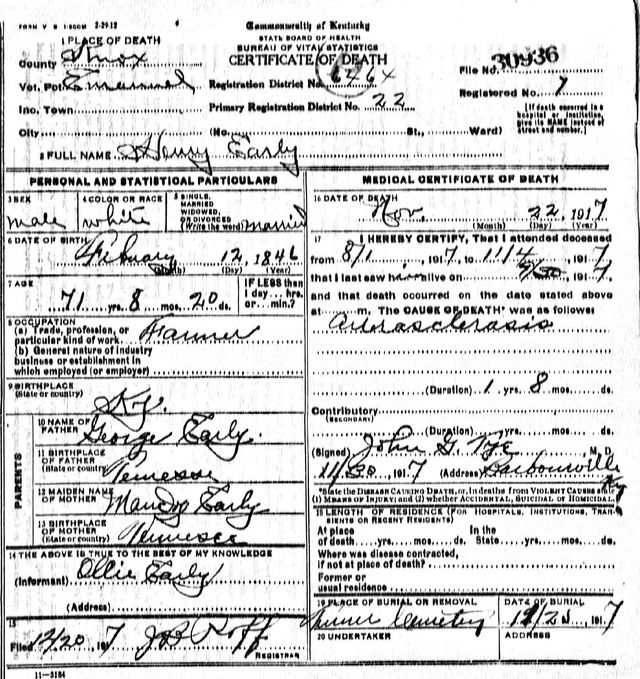 FORM V. S. 1-500M 2-29-12
Commonwealth of Kentucky
STATE BOARD OF HEALTH
BUREAU OF VITAL STATISTICS
CERTIFICATE OF DEATH
1 PLACE OF DEATH
County Knox
Vot. Pct. Emanuel
Inc. Town
City
Registration District No. 6464
Primary Registration District No. 22
(No. St., Ward)
File No. 30936
Registered No. 7
[If death occurred in a hospital or institution, give its NAME instead of street and number.]
2 FULL NAME Henry Early
PERSONAL AND STATISTICAL PARTICULARS
3 SEX
male
4 COLOR OR RACE
white
5 SINGLE, MARRIED, WIDOWED, OR DIVORCED (Write the word) Married
6 DATE OF BIRTH
Febuary 12, 1846
(Month) (Day) (Year)
7 AGE
71 yrs. 8 mos. 20 ds.
IF LESS than 1 day... hrs. or... min.?
8 OCCUPATION
(a) Trade, profession, or particular kind of work Farmer
(b) General nature of industry
business or establishment in
which employed (or employer)
9 BIRTHPLACE
(State or country)
Ky.
PARENTS
10 NAME OF FATHER
George Early.
11 BIRTHPLACE OF FATHER
(State or country)
12 MAIDEN NAME OF MOTHER
Mandy Early
13 BIRTHPLACE OF MOTHER
(State or country)
14 THE ABOVE IS TRUE TO THE BEST OF MY KNOWLEDGE
(Informant) Ollie Early
(Address)
15
Filed 12/20 1917
REGISTRAR
11-3184
MEDICAL CERTIFICATE OF DEATH
16 DATE OF DEATH
Nov. 22, 1917
(Month) (Day) (Year)
17 I HEREBY CERTIFY, That I attended deceased
from 8/1, 1917, to 11/4, 1917
that I last saw him alive on 1917,
and that death occurred on the date stated above
at m. The CAUSE OF DEATH* was as follows:
(Duration) 1 yrs. 8 mos. ds.
Contributory
(SECONDARY)
(Duration) yrs. mos. ds.
(Signed) John G. Tye, M. D.
11/30, 1917 (Address) Barbourville Ky
*State the DISEASE CAUSING DEATH, or, in deaths from VIOLENT CAUSES state
(1) MEANS OF INJURY; and (2) whether ACCIDENTAL, SUICIDAL or HOMICIDAL.
18 LENGTH OF RESIDENCE (FOR HOSPITALS, INSTITUTIONS, TRANSIENTS OR RECENT RESIDENTS)
At place of death yrs. mos. ds.
In the State yrs. mos. ds.
Where was disease contracted,
if not at place of death?
Former or
usual residence
19 PLACE OF BURIAL OR REMOVAL
Cemetery
DATE OF BURIAL
1917
20 UNDERTAKER
ADDRESS